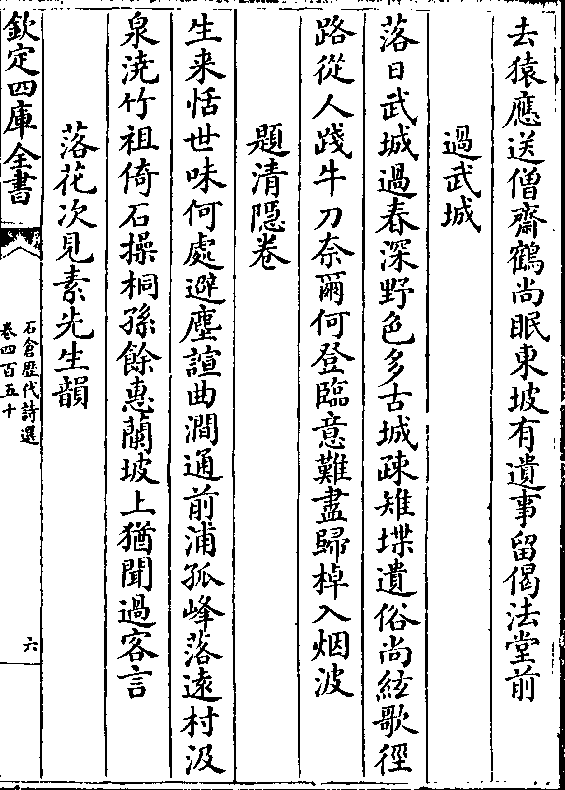 去猿應送僧齋鶴尚眠東坡有遺事留偈法堂前
過武城
落日武城過春深野色多古城疎雉堞遺俗尚絃歌徑
路從人踐牛刀奈爾何登臨意難盡歸棹入烟波
題清隱卷
生来恬世味何處避塵諠曲澗通前浦孤峰落遠村汲
泉澆竹祖倚石操桐孫餘惠蘭坡上猶聞過客言
落花次見素先生韻
欽定四庫全書
石倉歷代詩選
卷四百五十
六